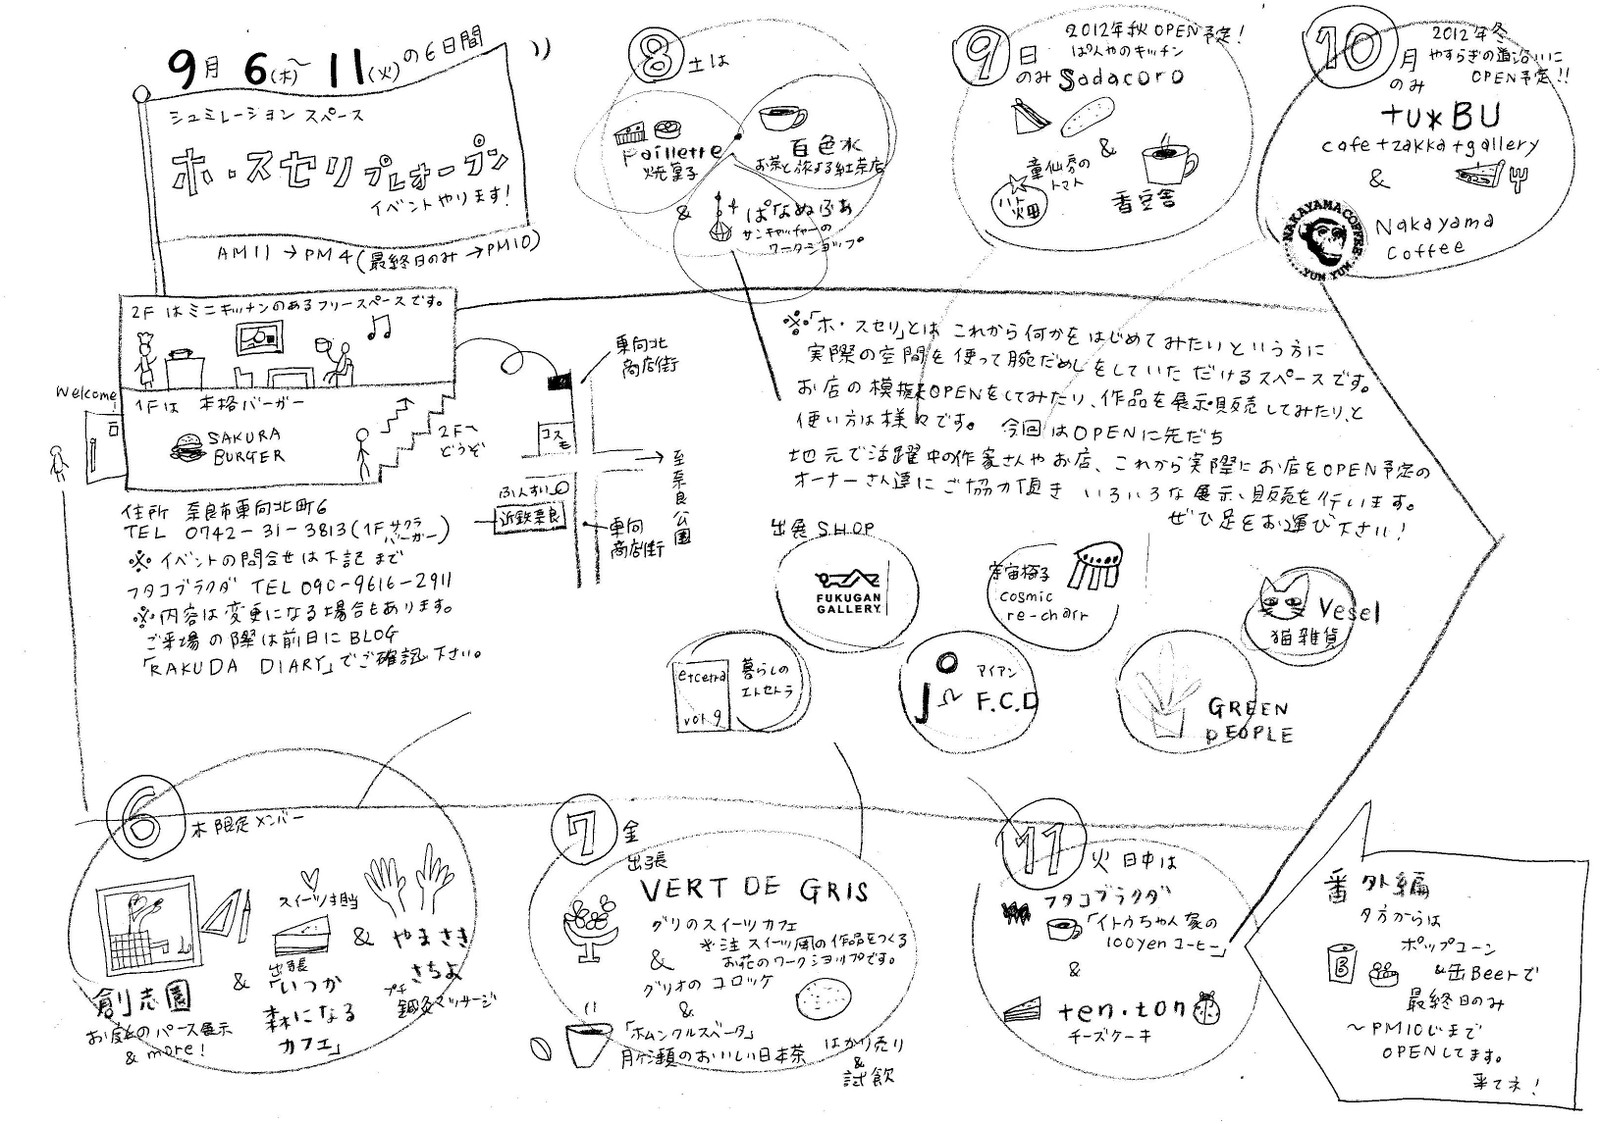 9月 6(木)〜11(火)の6日間
シュミレーション スペース
ホ・スセリ プレオープン
イベントやります!
AM11→PM4(最終日のみ→PM10)
2F はミニキッチンのあるフリースペースです。
Welcome!
1Fは 本格バーガー
SAKURA
BURGER
2Fへ
どうぞ
東向北
商店街
コスモ
至奈良公園
ふんすい
近鉄奈良
東向
商店街
住所 奈良市東向北町6
TEL 0742-31-3813(1Fサクラバーガー)
※イベントの問合せは下記まで
フタコブラクダ TEL 090-9616-2911
※内容は変更になる場合もあります。
ご来場の際は前日にBLOG
「RAKUDA DIARY」でご確認下さい。
8 土は
paillette
焼菓子
百色水
お茶と旅する紅茶店
& ぱなぬふぁ
サンキャッチャーの
ワークショップ
9 日のみ
2012年秋OPEN予定!
ぱんやのキッチン
Sadacoro
&
童仙房の
トマト
ハト畑
香豆舎
10 月のみ
2012年冬
やすらぎの道沿いに
OPEN予定!!
tu*BU
cafe+zakka+gallery
&
NAKAYAMA COFFEE
YUM YUM
Nakayama
Coffee
※「ホ・スセリ」とは これから何かを はじめてみたいという方に
実際の空間を使って腕だめしをしていただけるスペースです。
お店の模擬OPENをしてみたり、作品を展示・販売してみたり、と
使い方は様々です。 今回はOPENに先だち
地元で活躍中の作家さんやお店、これから実際にお店をOPEN予定の
オーナーさん達にご協力頂き いろいろな展示、販売を行います。
ぜひ足をお運び下さい!
出展SHOP
FUKUGAN
GALLERY
宇宙椅子
cosmic
re-chair
Vesel
猫雑貨
etcetra
vol.9
暮らしの
エトセトラ
アイアン
F.C.D
GREEN
PEOPLE
6 木 限定メンバー
創志園
お庭のパース展示
& more!
&
スイーツ担当
出張
「いつか
森になる
カフェ」
& やまさき
さちよ
プチ
鍼灸マッサージ
7 金
出張
VERT DE GRIS
グリのスイーツカフェ
※注 スイーツ風の作品をつくる
お花のワークショップです。
&
グリオのコロッケ
&
「ホムンクルスベータ」
月ヶ瀬のおいしい日本茶
はかり売り
&
試飲
11 火 日中は
フタコブラクダ
「イトウちゃん家の
100yenコーヒー」
&
ten.ton
チーズケーキ
番外編
夕方からは
ポップコーン
&缶Beerで
B
最終日のみ
〜PM10じまで
OPENしてます。
来てネ!